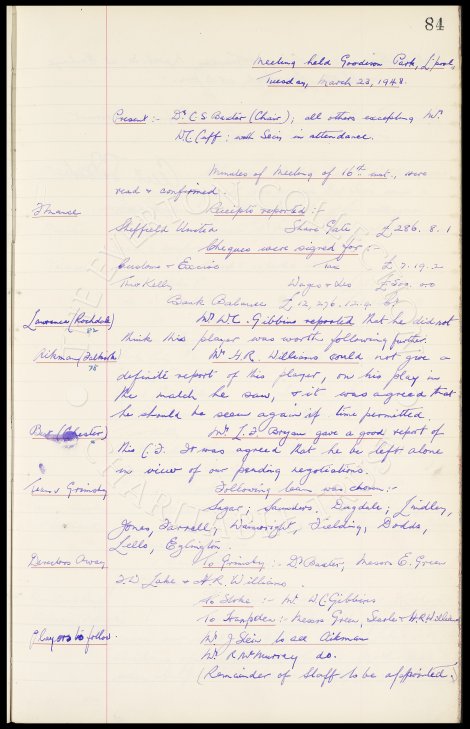 84
Meeting held Goodison Park, L'pool,
Tuesday, March 23, 1948.
Present :- Dr. C S Baxter (Chair); all others excepting Mr.
W C Cuff: with Secs in attendance.
Minutes of Meeting of 16th inst., were
read & confirmed.
Finance Receipts reported :-
Sheffield United Share Gate £286. 8. 1
Cheques were signed for :-
Customs & Excise Tax £7. 19. 2
Theo Kelly Wages &
Bank Balance £12,276. 12. 9.
Lawrence (Rochdale) Mr. W.C. Gibbins reported that he did not
82
think this player was worth following further.
Aikman (Falkirk) Mr H.R. Williams could not give a
78
definite report of this player, on his play in
the match he saw, & it was agreed that
he should be seen again if time permitted.
(Chester) Mr. L. F. Bryan gave a good report of
this C.F. It was agreed that he be left alone
in view of our pending negotiations.
Team v Grimsby Following team was chosen :-
Sagar; Saunders, Dugdale; Lindley,
Jones, Farrell; Wainwright, Fielding, Dodds,
Lello, Eglington.
Directors Away To Grimsby :- Dr Baxter, Messrs E. Green
& H.R. Williams.
To Stoke :- Mr. W C Gibbins
To :- Messrs Green, Searle & H.R Williams
Players to follow. Mr. J Stein to see Aikman
Mr. R McMurray do.
(Remainder of Staff to be appointed.)